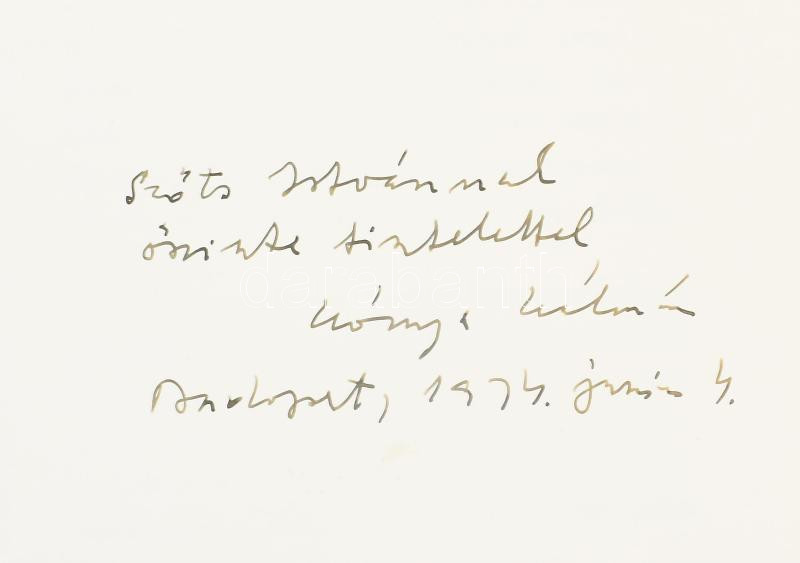 Szőts Istvánnak
őszinte tisztelettel
Kónya Kálmán
Budapest, 1974. június 4.
darabanth